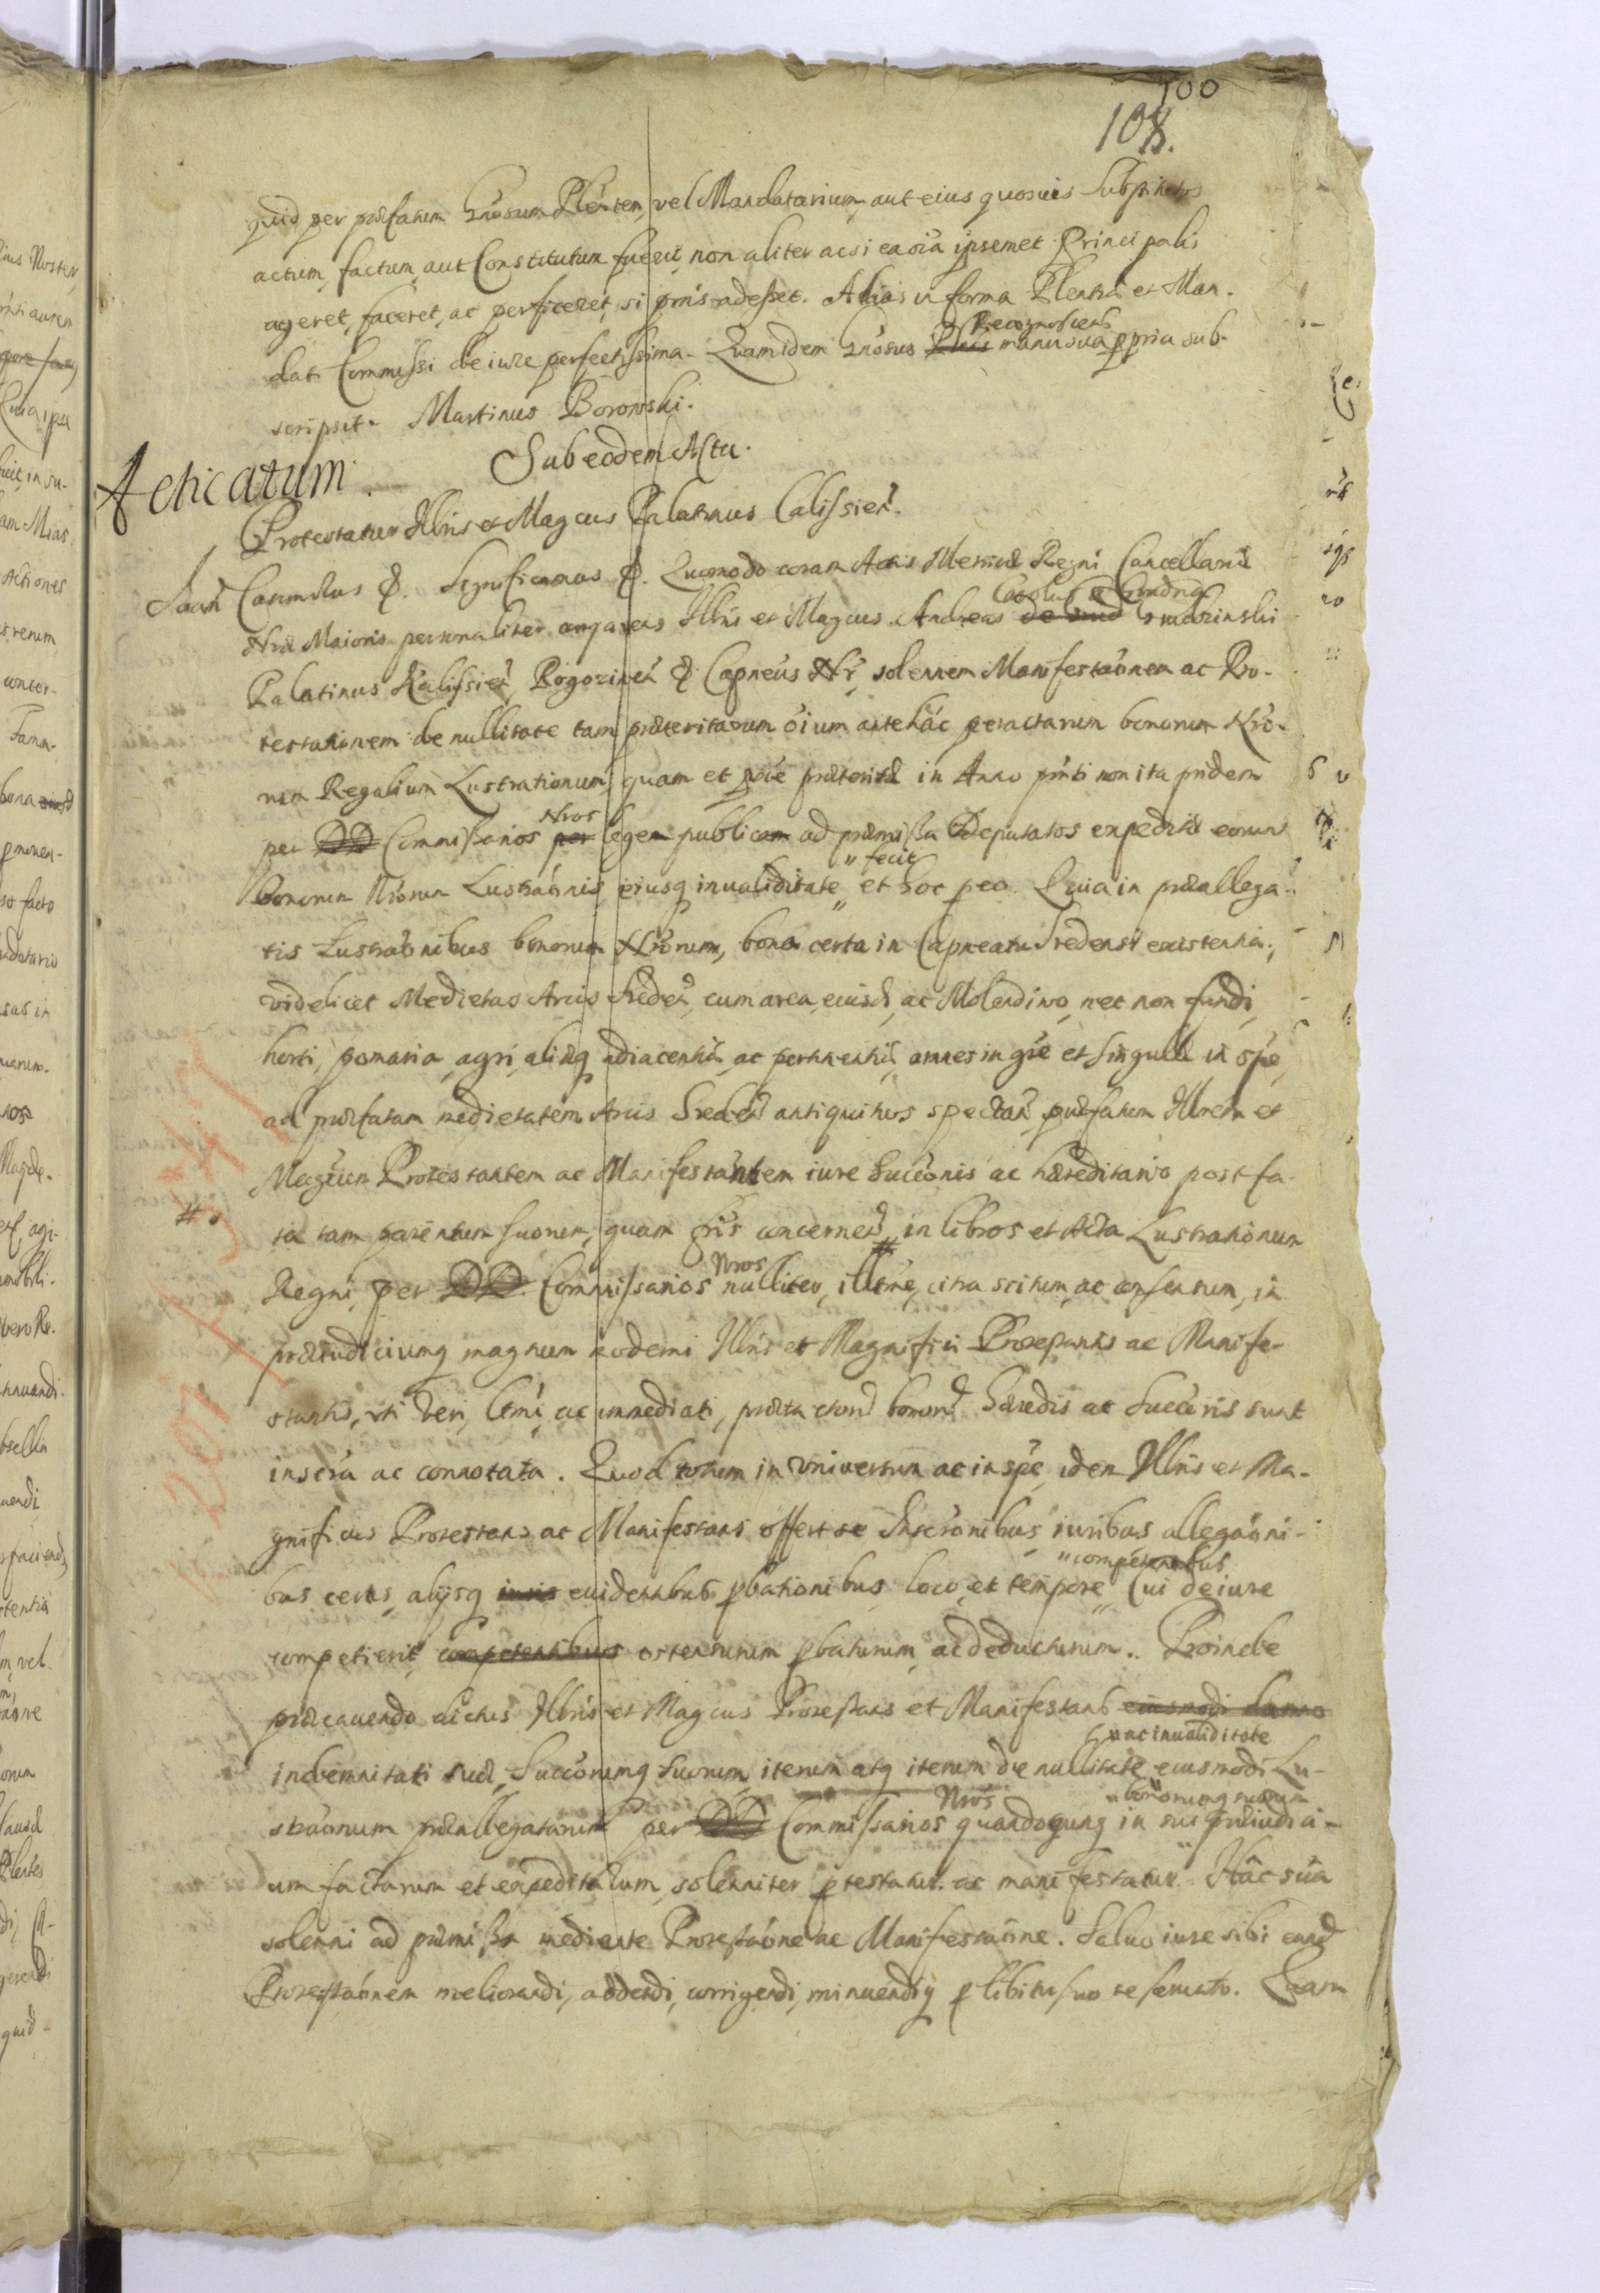 100
108.
quid per præfatum Gnosum Plenten, vel Mandatarium, aut eius quosvis Substitutos
actum, factum, aut Constitutum fuerit, non aliter acsi ea oia ipsemet Principalis
ageret, faceret, ac perficeret, si pns adesset. Alias in forma Plentiæ et Man-
dati Commissi de iure perfectissima. Quam idem Gnosus Recognoscens manu sua ppria sub-
scripsit. Martinus Borowski.
Sub eodem Actu.
Acticatum.
Protestatur Illris et Magcus Palatinus Calissien.
Joan Casimirus &. Significamus &. Quomodo coram Actis Metricæ Regni Cancellariæ
Nræ Maioris personaliter comparens Illris et Magcus Andreas Carolus a Grudna Grudzinski
Palatinus Kalissien, Rogozinen & Capneus Nr, solennem Manifestaonem ac Pro-
testationem de nullitate tam præteritarum oium antehac peractarum bonorum Nro-
rum Regalium Lustrationum, quam et pnte præteritæ in Anno pnti non ita pridem
per DD Commissarios Nros per legem publicam ad præmissa Deputatos expeditæ eorum
bonorum Nrorum Lustraonis, eiusq invaliditate fecit, et hoc peo. Quia in præallega-
tis Lustraonibus bonorum Nrorum, bona certa in Capneatu Sredensi existentia,
videlicet Medietas Arcis Sreden, cum area eiusd, ac Molendino, nec non fundi,
horti, pomaria, agri, aliæq adiacentiæ, ac pertinentiæ, omnes in gne et singulæ in spe,
ad præfatam medietatem Arcis Sreden antiquitus spectan, præfatum Illrem et
Magcum Protestantem ac Manifestantem iure Succonis ac hæreditario post fa-
# ta tam parentum suorum, quam fris concernen, # in libros et Acta Lustrationum
Regni, per DD Commissarios Nros nulliter, illtme, citra scitum, ac consensum, in
præiudiciumq magnum eodemi Illris et Magnifici Protestantis ac Manife-
stantis, uti veri, ltmi, ac immediati, prætactorum bonorum Hæredis ac Succoris sunt
inserta ac connotata. Quod totum in universum ac in spe, idem Illris et Ma-
gnificus Protestans ac Manifestans offert se Inscronibus, iuribus allegaoni-
bus certis, alijsq iuris evidentibus pbationibus, loco, et tempore competentibus Cui de iure
competierit, competentibus ostensurum pbaturum, ac deducturum. Proinde
præcavendo dictus Illris et Magcus Protestans et Manifestans eiusmodi damno
indemnitati suæ, Succorumq suorum, iterum atq iterum de nullitate ac invaliditate eiusmodi Lu-
straonum præallegatarum per DD Commissarios Nros quandocunq in sui bonorumq suorum præiudici-
um factarum et expeditarum, solenniter ptestatur ac manifestatur. Hac sua
solenni ad præmissa mediante Protestaone ac Manifestaone. Salvo iure sibi eand
Protestaonem meliorandi, addendi, corrigendi, minuendiq p libitu suo reservato. Quam